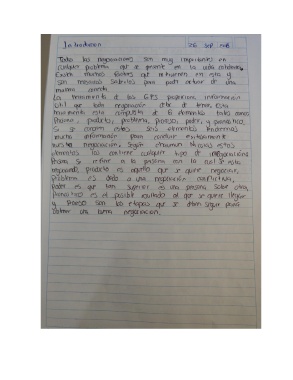 Introduccion 26 sep
Todas las negociaciones son muy importantes en
cualquier problema que se presente en la vida cotidiana.
Existen muchos factores que intervienen en esta y
son necesarios saberlos para poder actuar de una
manera
La herramienta de las 6 P's proporciona informacion
util que toda negociacion debe de tener. Esta
herramienta esta compuesta de 6 elementos tales como
Persona, producto, problema, proceso, poder, y pronostico,
Si se conocen estos seis elementos tendremos
mucha informacion para
nuestra negociacion. Según estos
elementos los contiene cualquier tipo de negociacion
Persona se refiere a la persona con la cual se esta
negociando, producto es aquello que se quiere negociar,
problema es a una negociacion conflictiva,
poder es que tan superior es una persona sobre otra,
Pronostico es el posible resultado al que se quiere llegar
y proceso son las etapas que se deben seguir para
una buena negociacion.